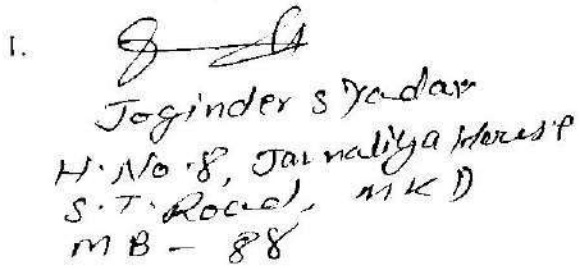 1.
Joginder S Yadav
H.No.8, Jarnaliya House
S.T. Road, MKD
MB - 88